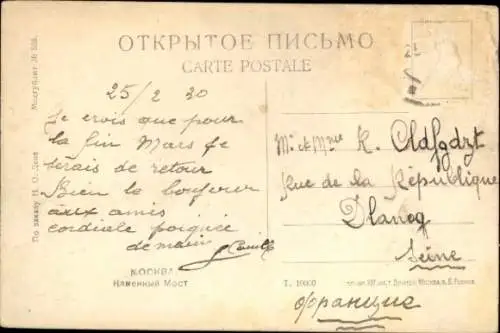 ОТКРЫТОЕ ПИСЬМО
CARTE POSTALE
25/2 30
Je crois que pour
la fin Mars je
serais de retour
Bien le bonjour
aux amis
cordiale poignée
de main
Camille
МОСКВА
Каменный Мост
По заказу Н.
Мосгублит №
Mr et Mme K.
Rue de la République
Seine
Т. 10000
Франция